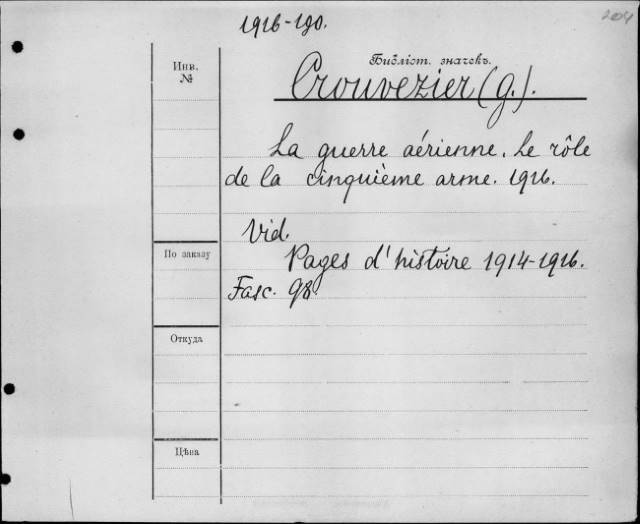 1916-190.
Библіот. значекъ.
Инв.
№
Crouvezier (G.).
La guerre aérienne. Le rôle
de la cinquième arme. 1916.
Vid.
Pages d'histoire 1914-1916.
По заказу
Fasc. 98
Откуда
Цѣна